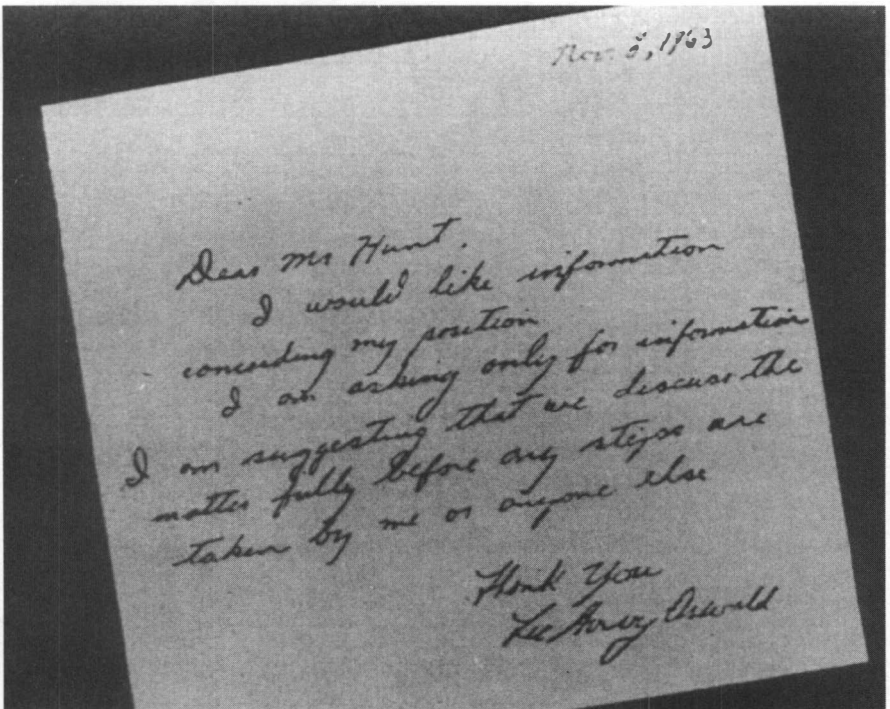 Nov. 8, 1963
Dear Mr Hunt.
I would like information
concerding my position
I am asking only for information
I am suggesting that we discuss the
matter fully before any steps are
taken by me or anyone else
Thank You
Lee Harvey Oswald